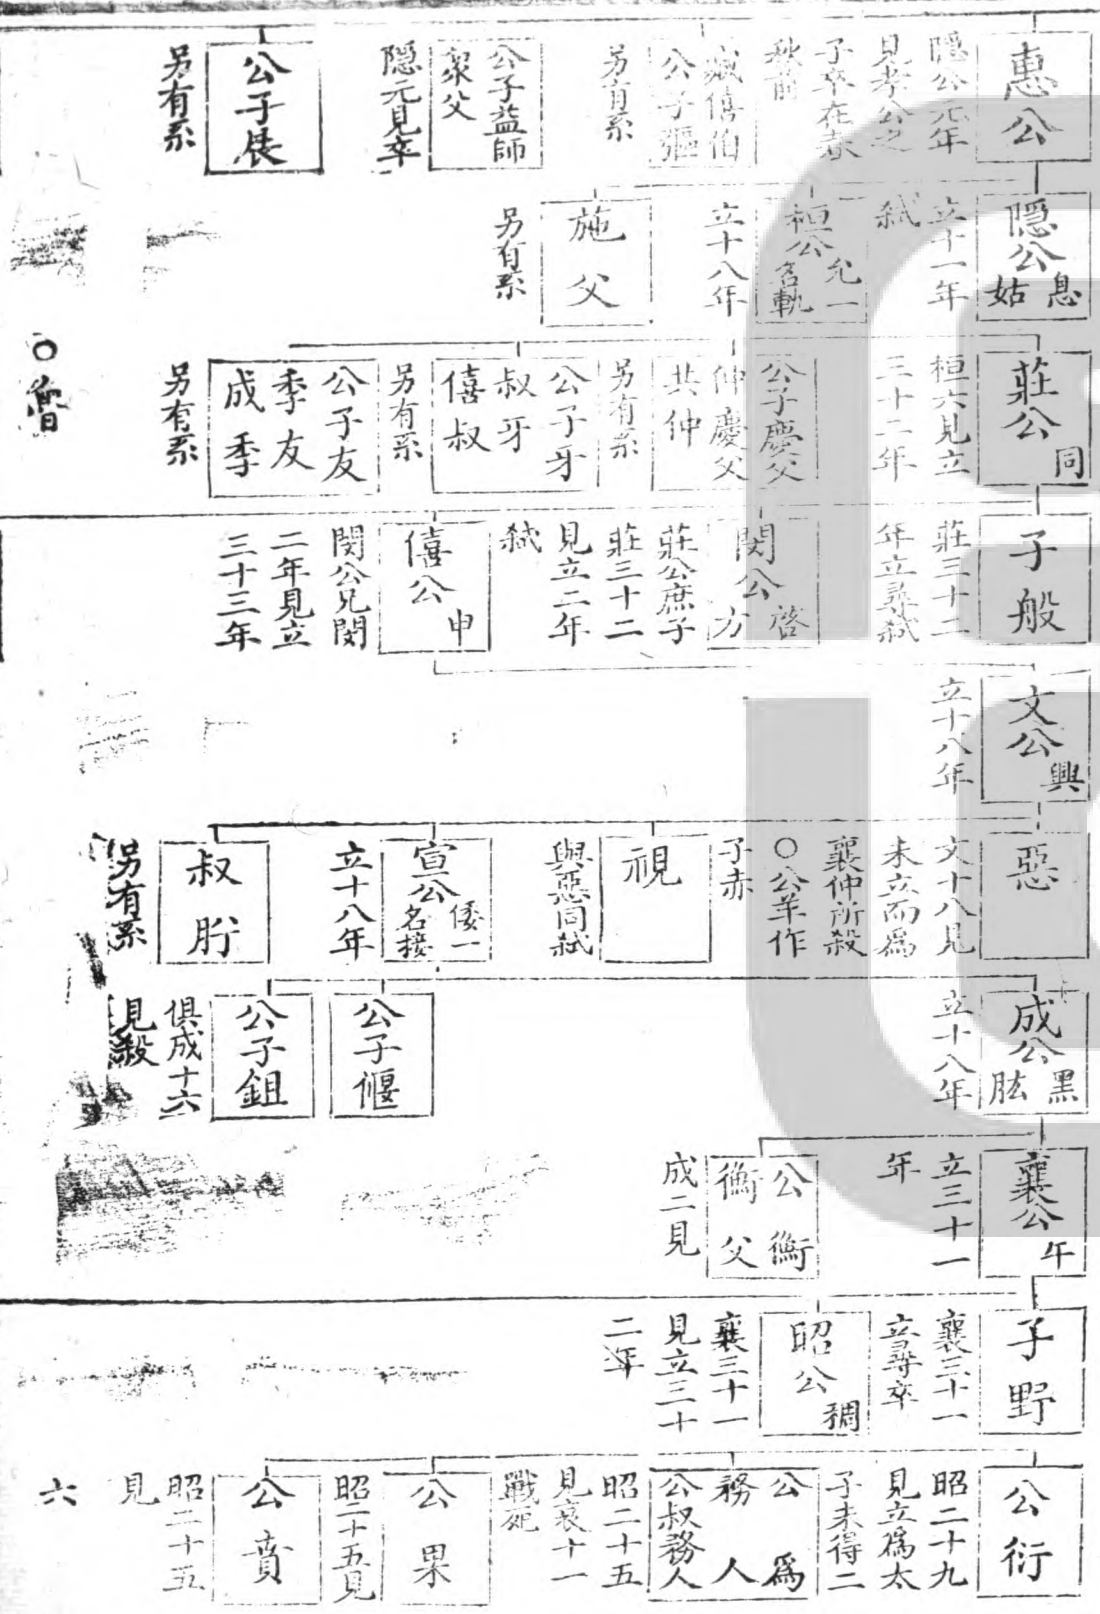 惠公
隱公元年
見孝公之
子卒在春
秋前
臧僖伯
公子彄
另有系
公子益師
衆父
隱元見卒
公子展
另有系
隱公 息姑
立十一年
弑
桓公 允一名軌
立十八年
施父
另有系
莊公 同
桓六見立
三十二年
公子慶父
仲慶父
共仲
另有系
公子牙
叔牙
僖叔
另有系
公子友
季友
成季
另有系
子般
莊三十二
年立尋弑
閔公 啓方
莊公庶子
莊三十二
見立二年
弑
僖公 申
閔公兄閔
二年見立
三十三年
文公 興
立十八年
惡
文十八見
未立而爲
襄仲所殺
○公羊作
子赤
視
與惡同弑
宣公 倭一名接
立十八年
叔肸
另有系
成公 黑肱
立十八年
公子偃
公子鉏
俱成十六
見殺
襄公 午
立三十一
年
公衡
衡父
成二見
子野
襄三十一
立尋卒
昭公 裯
襄三十一
見立三十
二年
公衍
昭二十九
見立爲太
子未得二
公爲
務人
公叔務人
昭二十五
見哀十一
戰死
公果
昭二十五見
公賁
昭二十五
見
○魯
六